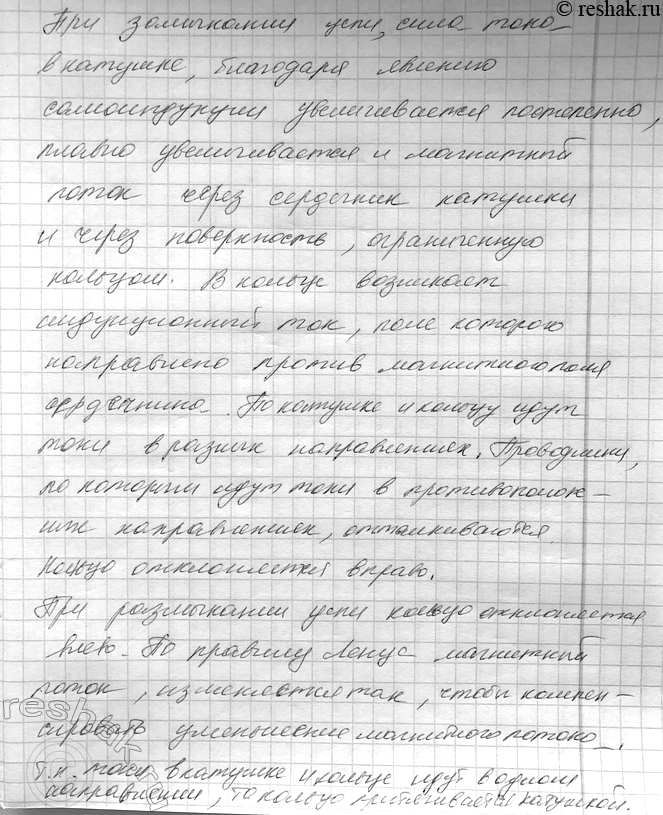 © reshak.ru
При замыкании цепи, сила тока
в катушке, благодаря явлению
самоиндукции увеличивается постепенно,
плавно увеличивается и магнитный
поток через сердечник катушки
и через поверхность, ограниченную
кольцом. В кольце возникает
индукционный ток, поле которого
направлено против магнитного поля
сердечника. По катушке и кольцу идут
токи в разных направлениях. Проводники,
по которым идут токи в противополож-
ных направлениях, отталкиваются.
Кольцо отклоняется вправо.
При размыкании цепи кольцо отклоняется
влево. По правилу Ленца магнитный
поток, изменяется так, чтобы компен-
сировать уменьшение магнитного потока.
Т.к. токи в катушке и кольце идут в одном
направлении, то кольцо притягивается катушкой.
reshak.ru